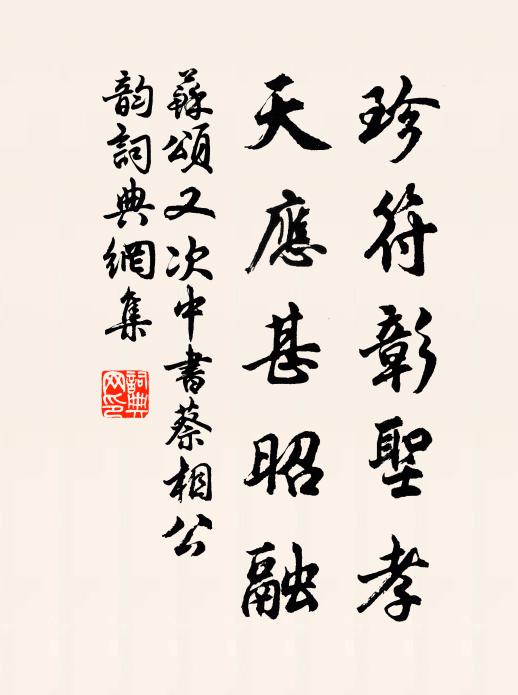 珍符彰聖孝
天應甚昭融
蘇頌又次中書蔡相公
韵詞典網集
詞典網印